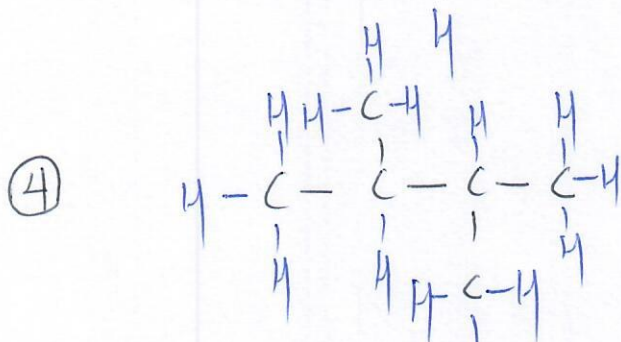 H H
H H-C-H H H
④ H-C-C-C-C-H
H H H-C-H H